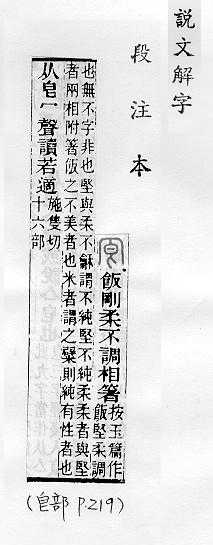 說文解字
段注本
冟 飯剛柔不調相箸
按玉篇作
飯堅柔調
也無不字非也堅與柔不龢謂不純堅不純柔柔者與堅
者兩相附著飯之不美者也米者謂之糱則純有性者也
从皀冖聲讀若適
施隻切
十六部
(皀部 P.219)